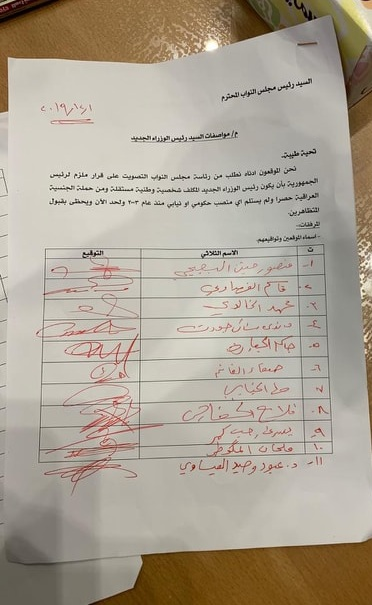 السيد رئيس مجلس النواب المحترم
٢٠١٩/١٢/١
م/ مواصفات السيد رئيس الوزراء الجديد
تحية طيبة..
نحن الموقعون ادناه نطلب من رئاسة مجلس النواب التصويت على قرار ملزم لرئيس
الجمهورية بأن يكون رئيس الوزراء الجديد المكلف شخصية وطنية مستقلة ومن حملة الجنسية
العراقية حصرا ولم يستلم اي منصب حكومي او نيابي منذ عام ٢٠٠٣ ولحد الآن ويحظى بقبول
المتظاهرين.
المرفقات:-
- اسماء الموقعين وتواقيعهم.
ت الاسم الثلاثي التوقيع
١- منصور حسين البعيجي
٢- قاسم الفهداوي
٣- محمد الخالدي
٤-
٥-
٦- صفاء الغانم
٧-
٨- فلاح الخفاجي
٩- يسرى رجب
١٠-
١١- د. عبود وحيد العيساوي